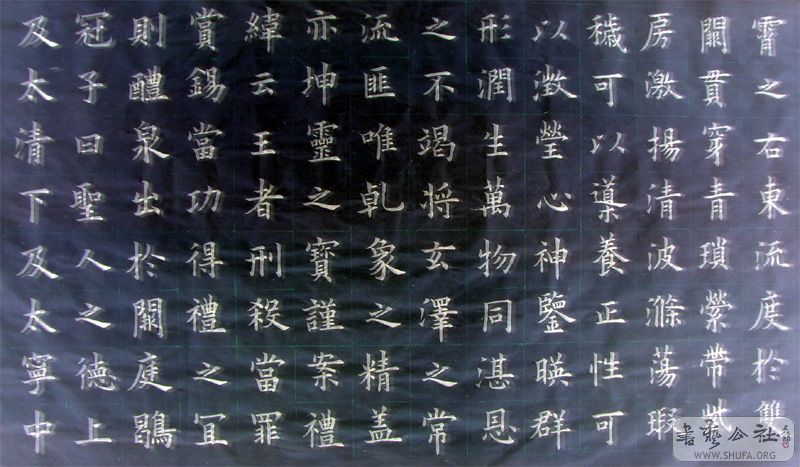 霄之右東流度於雙
闕貫穿青瑣縈帶紫
房激揚清波滌蕩瑕
穢可以導養正性可
以澂瑩心神鑒暎群
形潤生萬物同湛恩
之不竭将玄澤之常
流匪唯乾象之精盖
亦坤靈之寶謹案禮
緯云王者刑殺當罪
賞錫當功得禮之冝
則醴泉出於闕庭鶡
冠子曰聖人之德上
及太清下及太寧中
書艺公社
WWW.SHUFA.ORG